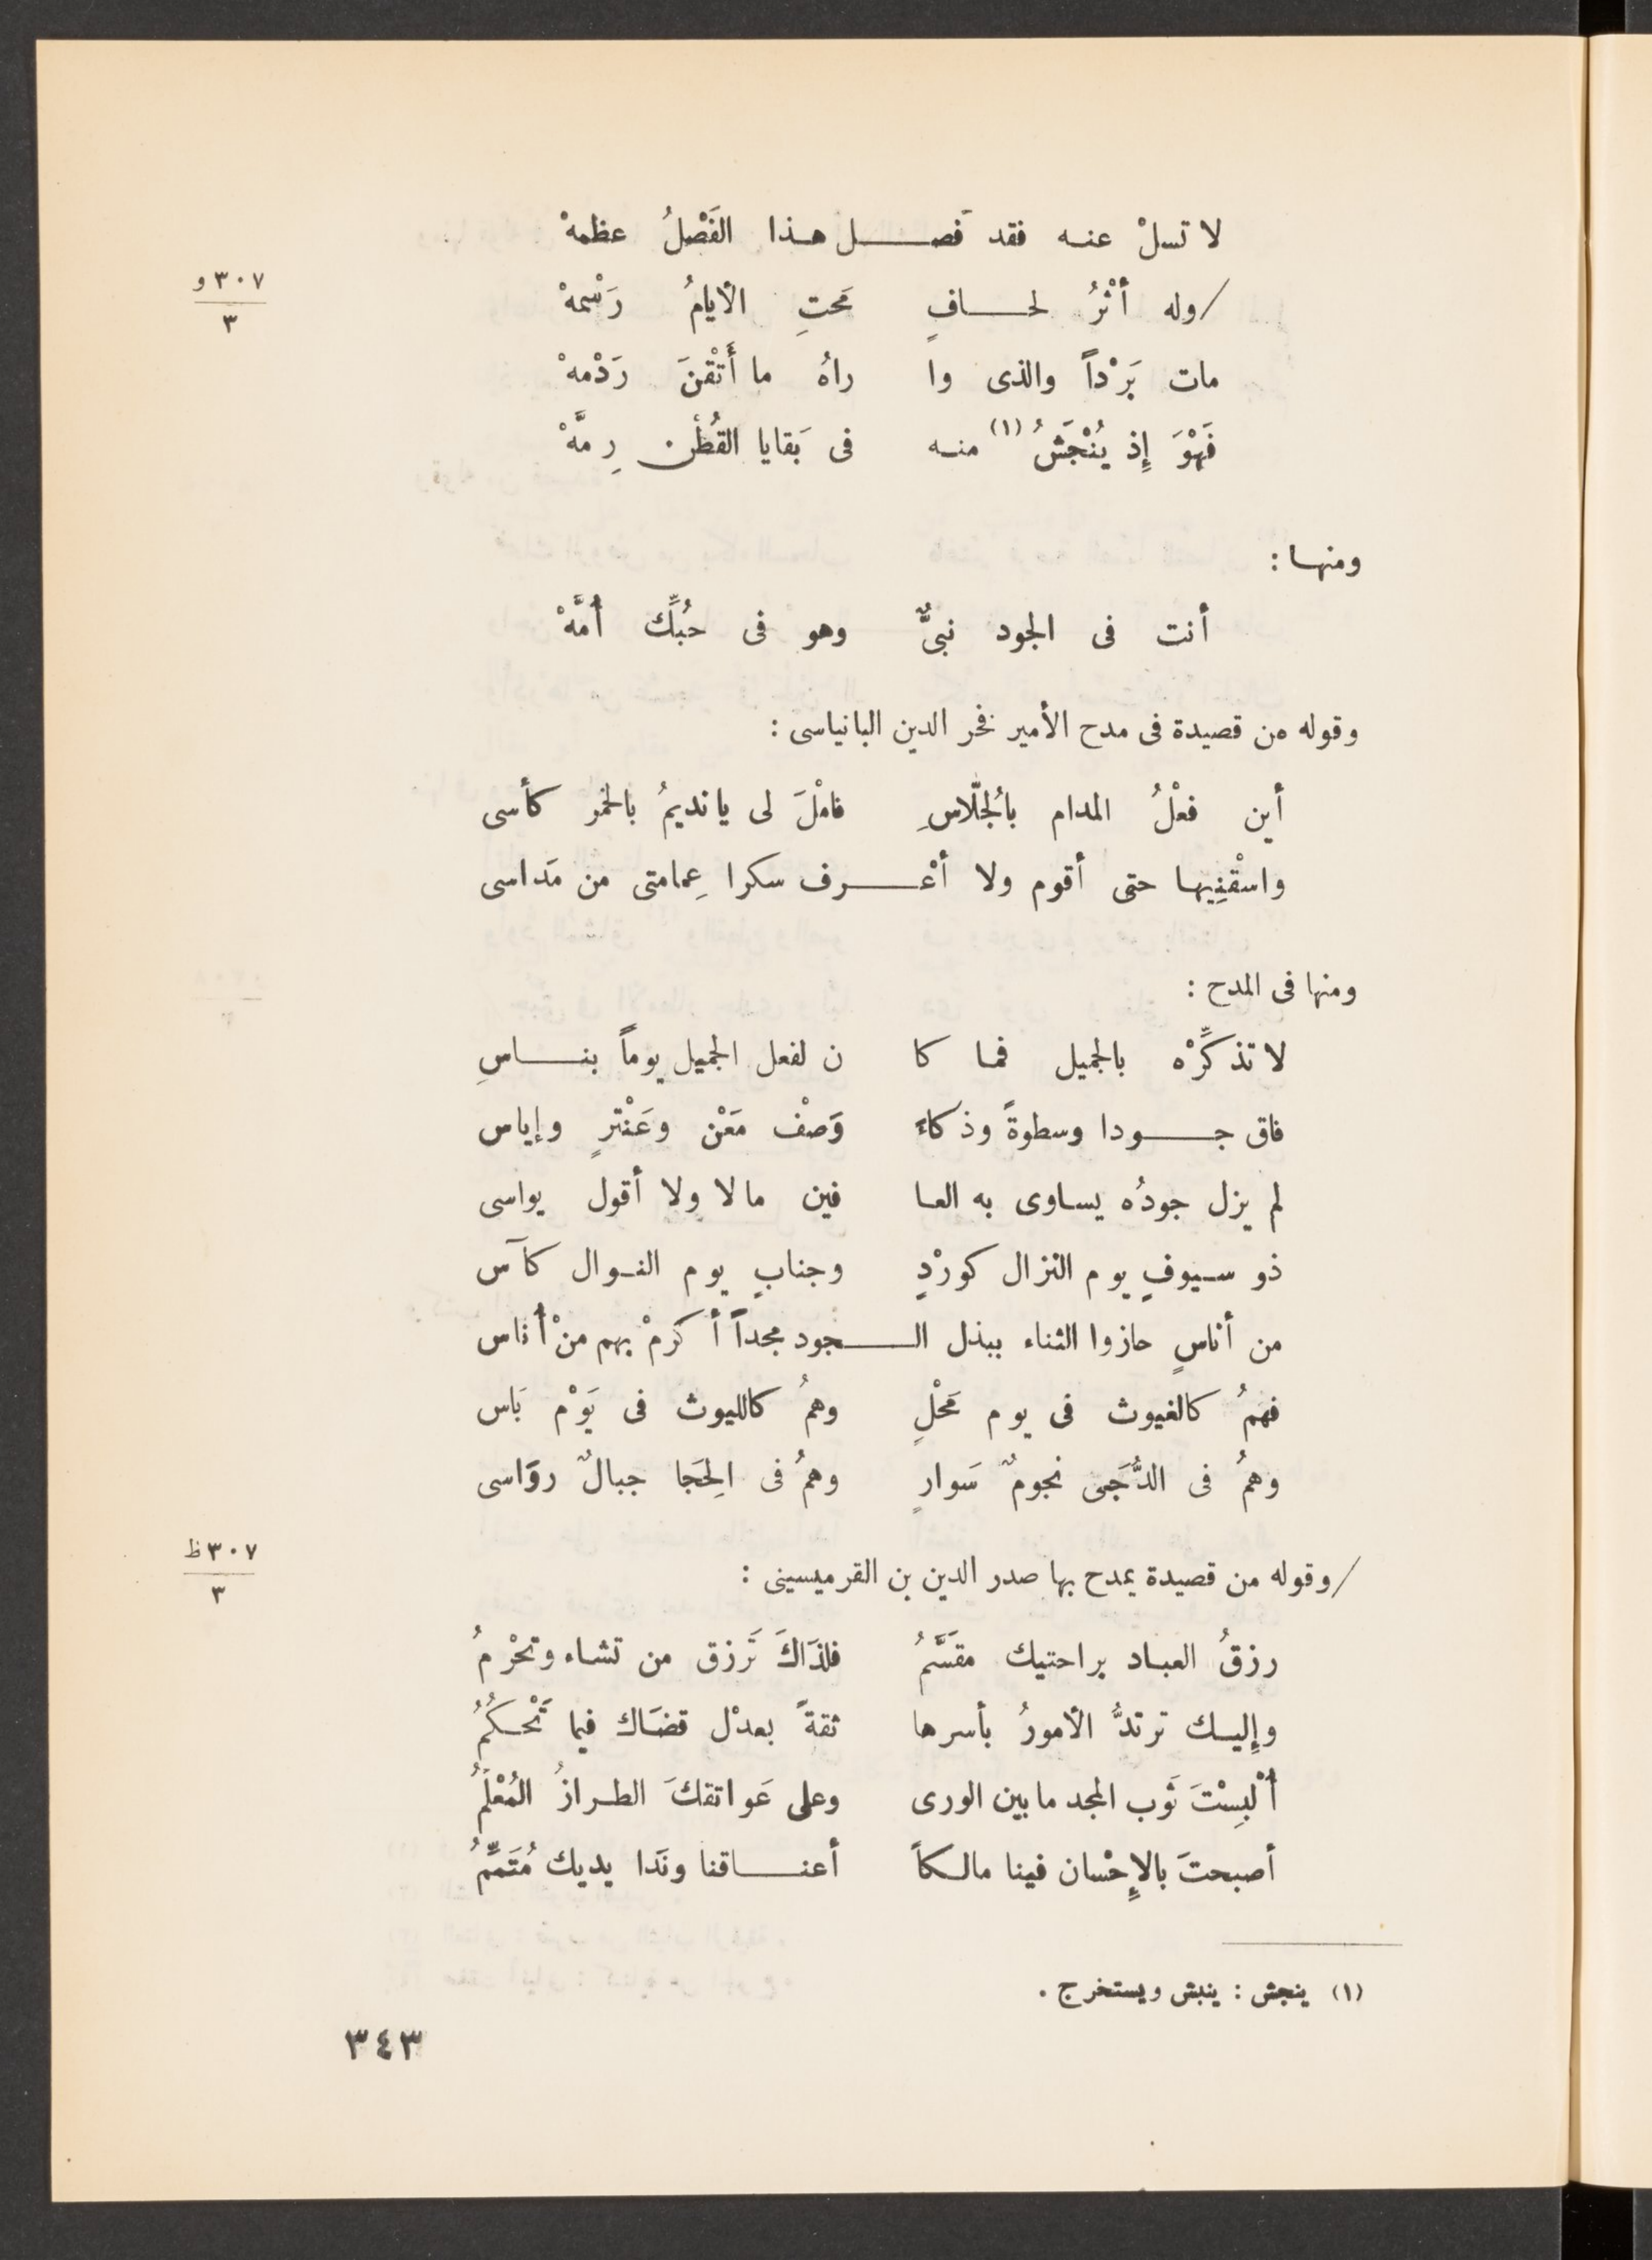 لا تسلْ عنه فقد فصـــل هذا الفَصْلُ عظمهْ
٣٠٧ و
٣
/وله أثْرُ لحـــافٍ مَحتِ الأيامُ رَسْمهْ
مات بَرْداً والذى وا راهُ ما أَتْقنَ رَدْمهْ
فَهْوَ إِذ يُنْجَشُ (١) منه فى بَقايا القُطْن رِمَّهْ
ومنها :
أنت فى الجود نبىٌّ وهو فى حُبِّك أُمَّهْ
وقوله من قصيدة فى مدح الأمير فخر الدين البانياسى :
أين فعْلُ المدام بالجُلّاسِ فامْلَ لى يا نديمُ بالخمر كأسى
واسْقنِيها حتى أقوم ولا أعْـــرف سكرا عِمامتى من مَداسى
ومنها فى المدح :
لا تذكِّرْه بالجميل فما كا ن لفعل الجميل يوماً بنـــاسِ
فاق جـــودا وسطوةً وذكاءً وَصْف مَعْن وعَنْترٍ وإياس
لم يزل جودُه يساوى به العا فين مالا ولا أقول يواسى
ذو سيوفٍ يوم النزال كورْدٍ وجنابٍ يوم النوال كآس
من أناسٍ حازوا الثناء ببذل الـــجود مجداً أكرمْ بهم منْ أناس
فهمُ كالغيوث فى يوم مَحْلٍ وهمُ كالليوث فى يَوْم بَاس
وهمُ فى الدُّجَى نجومٌ سَوارٍ وهمُ فى الحِجَا جبالٌ روَاسى
٣٠٧ ظ
٣
/وقوله من قصيدة يمدح بها صدر الدين بن القرميسينى :
رزقُ العباد براحتيك مقسَّمُ فلذَاكَ تَرزق من تشاء وتحْرمُ
وإِليك ترتدُّ الأمورُ بأسرها ثقةً بعدْل قضَاك فيما تَحْكُمُ
أُلْبِسْتَ ثَوب المجد ما بين الورى وعلى عَواتقكَ الطرازُ المُعْلَمُ
أصبحتَ بالإِحْسان فينا مالكاً أعنـــاقنا ونَدا يديك مُتَمِّمُ
(١) ينجش : ينبش ويستخرج .
٣٤٣